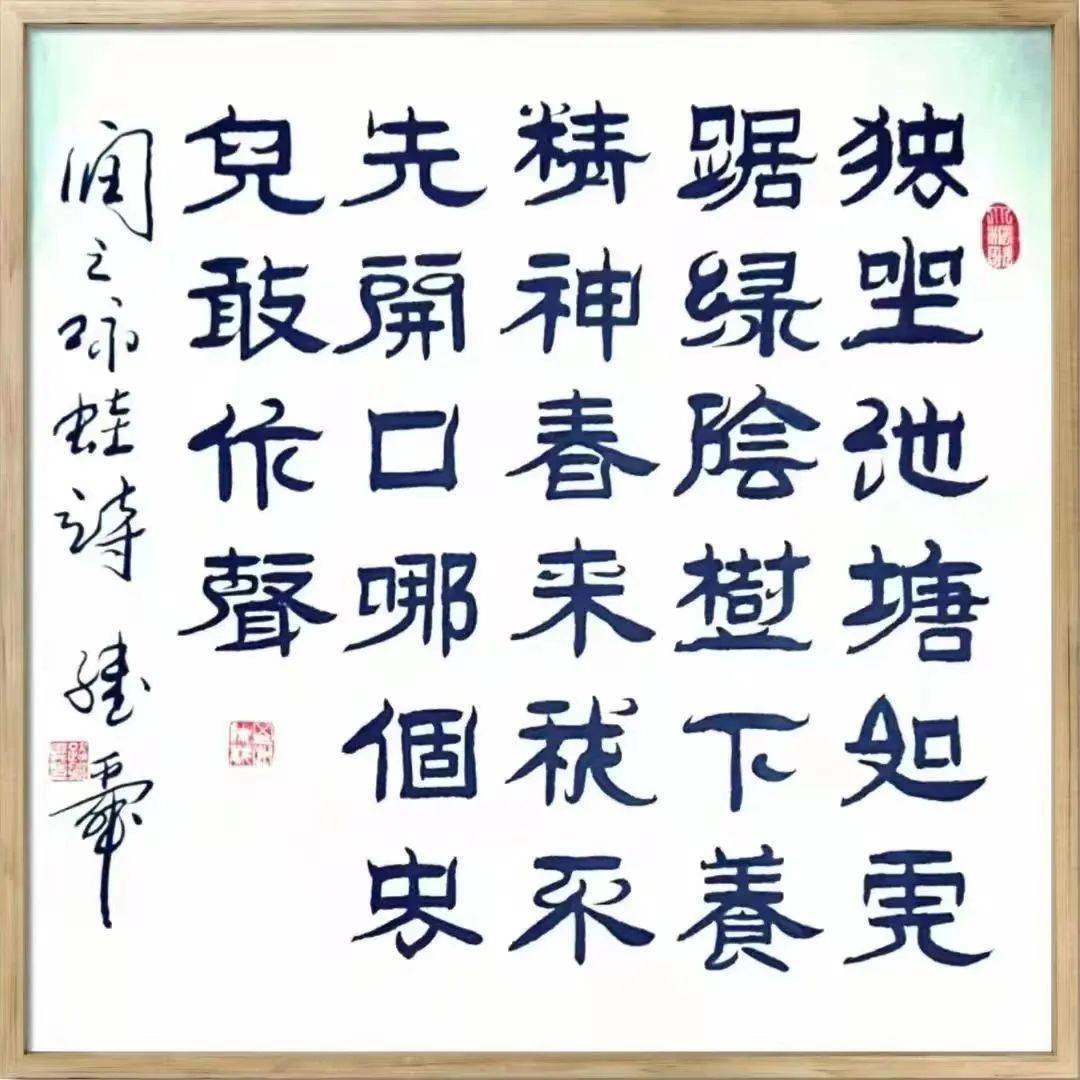 独坐池塘如虎
踞绿陰樹下養
精神春来我不
先開口哪個虫
兒敢作聲
润之咏蛙诗